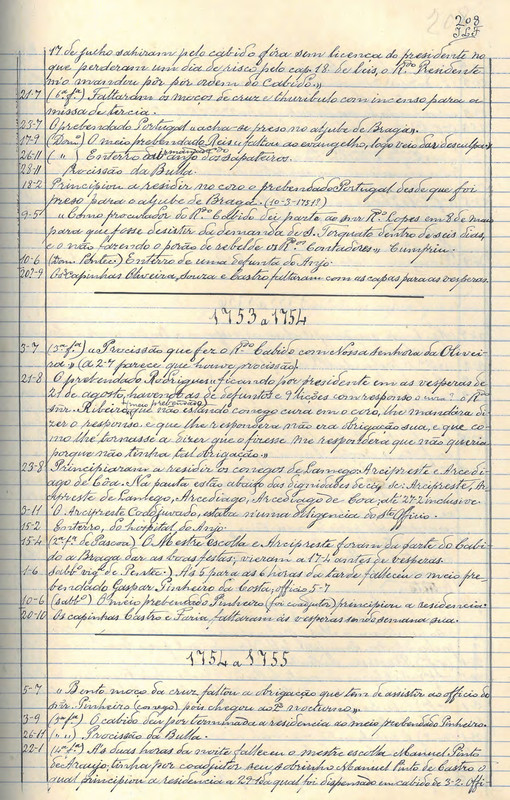 208
209
J.L.F.
17 de julho sahiram pelo cabido fóra sem licença do presidente no
que perderam um dia de risco pelo cap. 18 de leis, o R.do Presidente
m'o mandou pôr por ordem do Cabido.»
21-7 (6ª fª) Faltaram os moços de cruz e thuribulo com incenso para a
missa de tercia.
23-7 O prebendado Portugal «acha-se preso no aljube de Braga».
17-9 (Domº) O meio prebendado Reis «faltou ao evangelho, logo veio das desculpas»
26-11 ( " ) Enterro da irmandade do Anjo dos Sapateiros.
28-11 Procissão da Bulla.
18-2 Principiou a residir no côro o prebendado Portugal desde que foi
preso para o aljube de Braga. (10-3-1751?)
9-5 «Como procurador do R.do Cabido dei parte ao snr R.do Lopes em 8 de maio
para que fosse desistir da demanda de S. Torquato dentro de seis dias,
e o não fazendo o porão de rebelde os R.dos Contadores» Cumpriu.
10-6 (Dom. Pentec.) Enterro de uma defunta do Anjo.
20-9 Os capinhas Oliveira, Souza e Castro faltaram com as capas para as vesperas.
1753 a 1754
3-7 (3ª fª) «Procissão que fez o R.do Cabido com Nossa Senhora da Olivei-
ra» (a 2-7 parece que houve procissão).
21-8 O prebendado Rodrigues «ficando por presidente em as vesperas de
21 de agosto, havendo as de defuntos e 9 lições com responso o
snr. Ribeiro, (meio prebendado) que não estando conego cura em o coro, lhe mandára di-
zer o responso e que lhe respondera não era obrigação sua, e que co-
mo lhe tornasse a dizer que o fizesse me respondera que não queria
porque não tinha tal obrigação.»
23-8 Principiaram a residir os conegos de Lamego: Arcipreste e Arcedi-
ago de Côa. Na pauta estão abaixo das dignidades de cá: Arcipreste, Ar-
cipreste de Lamego, Arcediago, Arcediago de Côa, até 27-2 inclusive.
3-11 O Arcipreste Coadjuvado, estava n'uma diligencia do Sto Officio.
15-2 Enterro, do hospital do Anjo.
15-4 (2ª fª de Pascoa) O Mestre escolla e Arcipreste foram da parte do Cabi-
do a Braga dar as boas festas; vieram a 17-4 antes de vesperas.
1-6 (sabbº vigª de Pentec.) A's 5 para as 6 horas da tarde falleceu o meio pre-
bendado Gaspar Pinheiro da Costa, officio 5-7
10-6 (sabbº) O meio prebendado Pinheiro (foi coadjutor) principiou a residencia.
20-10 Os capinhas Castro e Faria faltaram ás vesperas sendo semana sua.
1754 a 1755
5-7 «Bento moço da cruz, faltou a obrigação que tem de assistir ao officio do
snr. Pinheiro (conego) pois chegou ao 2º nocturno».
3-9 (3ª fª) O cabido deu por terminada a residencia ao meio prebendado Pinheiro.
26-11 ( " " ) Procissão da Bulla.
22-1 (4ª fª) A's duas horas da noite falleceu o mestre escolla Manuel Pinto
de Araujo; tinha por coadjutor seu sobrinho Manuel Pinto de Castro o
qual principiou a residencia a 29-1 da qual foi dispensado em cabido de 3-2. Offi-